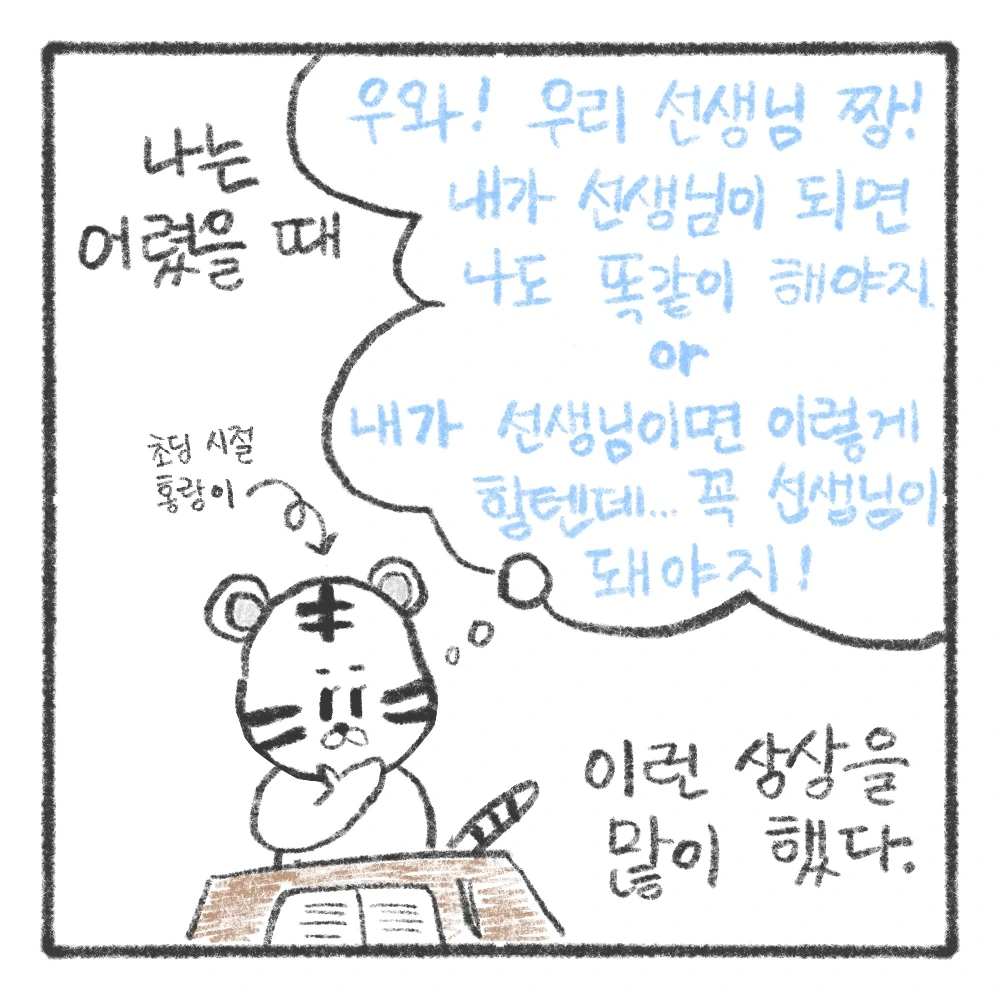 나는
어렸을 때
우와! 우리 선생님 짱!
내가 선생님이 되면
나도 똑같이 해야지
or
내가 선생님이면 이렇게
할텐데... 꼭 선생님이
돼야지!
초딩 시절
홍랑이
이런 상상을
많이 했다.